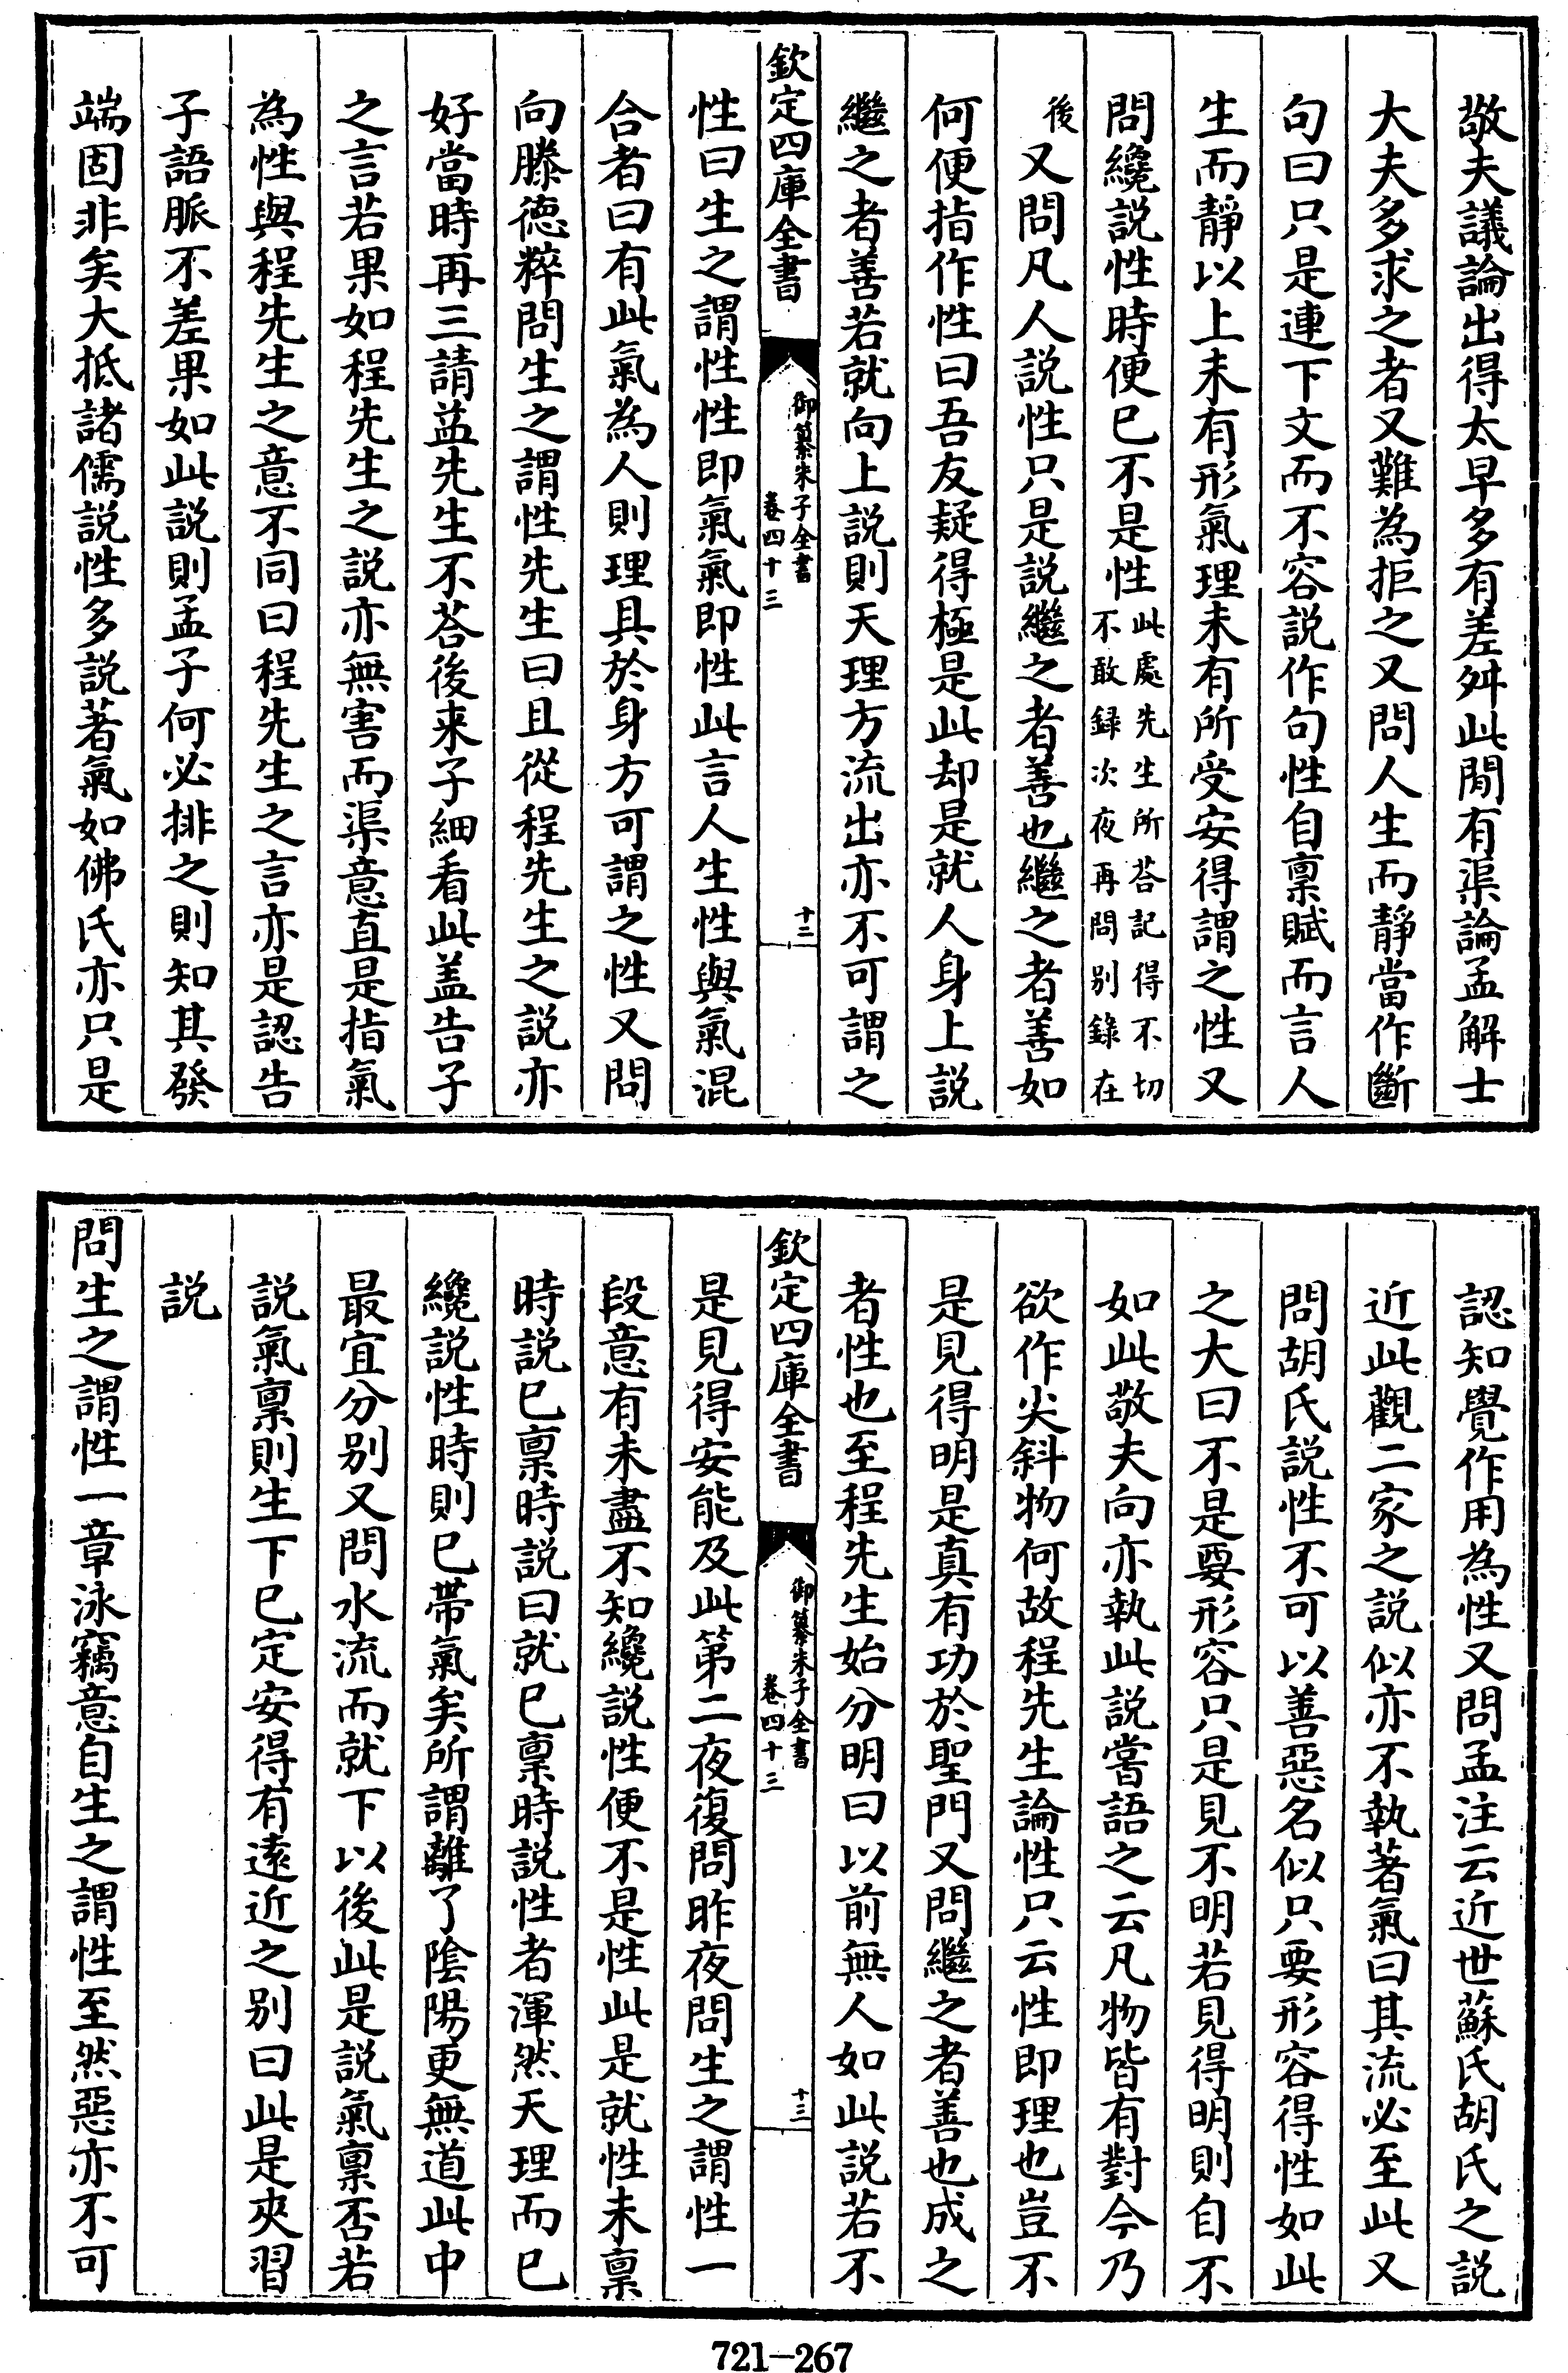 敬夫議論出得太早多有差舛此間有渠論孟解士
大夫多求之者又難為拒之又問人生而靜當作斷
句曰只是連下文而不容說作句性自稟賦而言人
生而靜以上未有形氣理未有所受安得謂之性又
問纔說性時便已不是性此處先生所荅記得不切
不敢録次夜再問别錄在
後又問凡人說性只是說繼之者善也繼之者善如
何便指作性曰吾友疑得極是此却是就人身上說
繼之者善若就向上說則天理方流出亦不可謂之
欽定四庫全書
御纂朱子全書
卷四十三
十二
性曰生之謂性性即氣氣即性此言人生性與氣混
合者曰有此氣為人則理具於身方可謂之性又問
向滕德粹問生之謂性先生曰且從程先生之說亦
好當時再三請益先生不荅後来子細看此盖告子
之言若果如程先生之說亦無害而渠意直是指氣
為性與程先生之意不同曰程先生之言亦是認告
子語脈不差果如此說則孟子何必排之則知其發
端固非矣大抵諸儒說性多說著氣如佛氏亦只是
認知覺作用為性又問孟注云近世蘇氏胡氏之說
近此觀二家之說似亦不執著氣曰其流必至此又
問胡氏說性不可以善惡名似只要形容得性如此
之大曰不是要形容只是見不明若見得明則自不
如此敬夫向亦執此說嘗語之云凡物皆有對今乃
欲作尖斜物何故程先生論性只云性即理也豈不
是見得明是真有功於聖門又問繼之者善也成之
者性也至程先生始分明曰以前無人如此說若不
欽定四庫全書
御纂朱子全書
卷四十三
十三
是見得安能及此第二夜復問昨夜問生之謂性一
段意有未盡不知纔說性便不是性此是就性未稟
時說已稟時說曰就已稟時說性者渾然天理而已
纔說性時則已帶氣矣所謂離了陰陽更無道此中
最宜分别又問水流而就下以後此是說氣稟否若
說氣稟則生下已定安得有逺近之别曰此是夾習
說
問生之謂性一章泳竊意自生之謂性至然惡亦不可
721-267